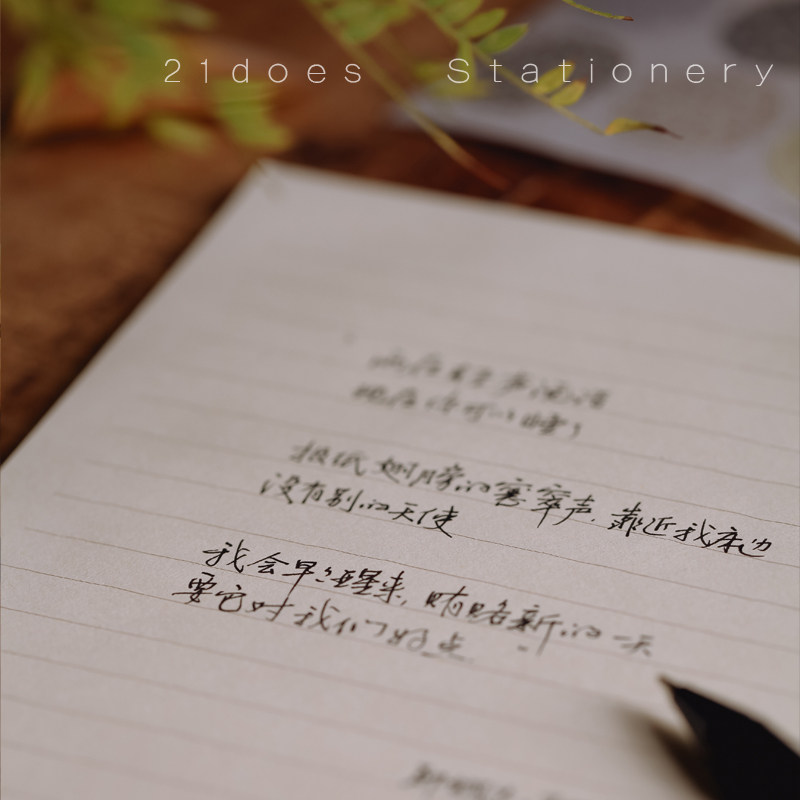 21does Stationery
现在你可以睡了
极低翅膀的窸窣声，靠近我床边
没有别的天使
我会早早醒来，贿赂新的一天
要它对我们好点